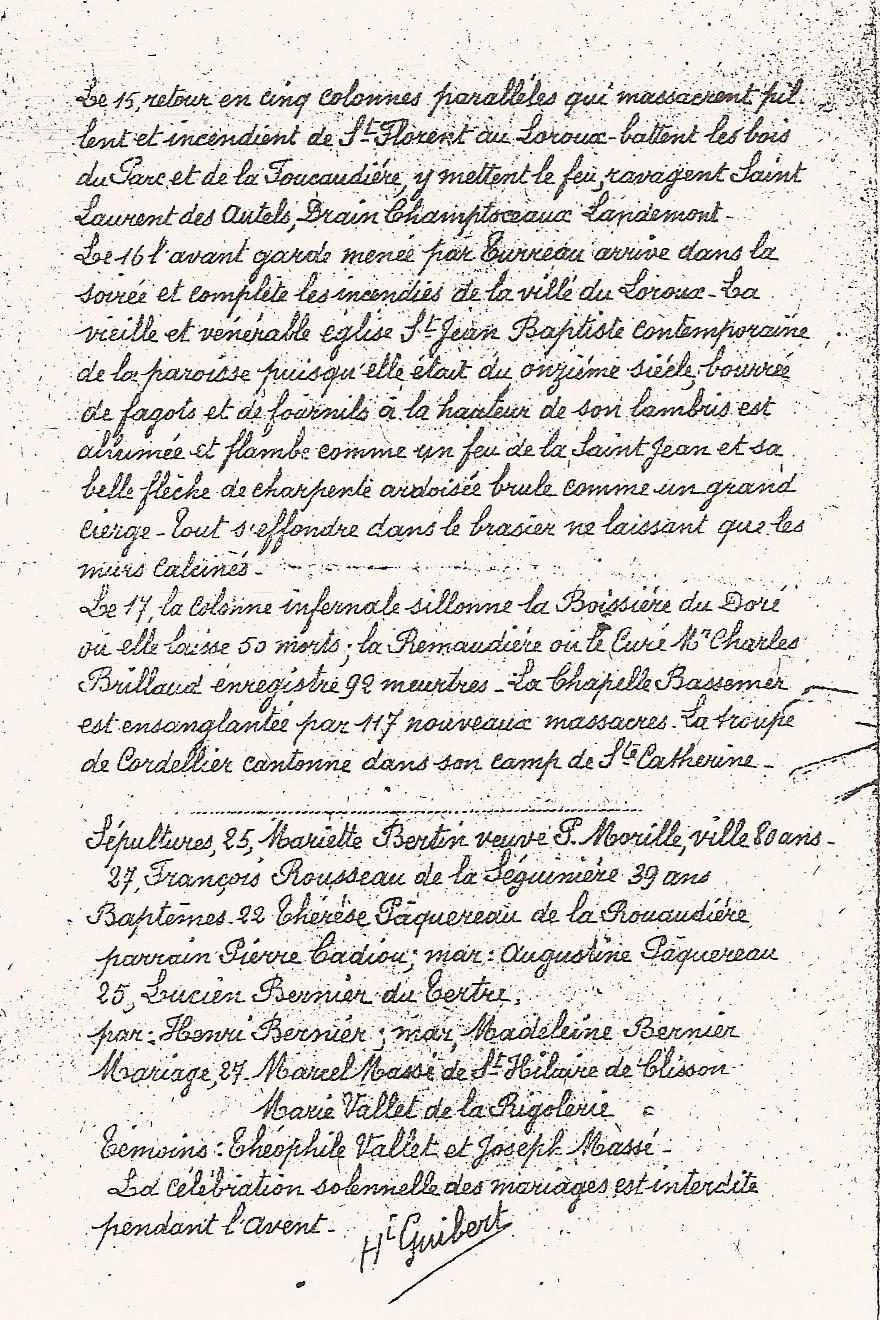 Le 15, retour en cinq colonnes parallèles qui massacrent pil-
lent et incendient de St Florent au Loroux - battent les bois
du Parc et de la Foucaudière, y mettent le feu, ravagent Saint
Laurent des Autels, Drain Champtoceaux Landemont -
Le 16 l'avant garde menée par Turreau arrive dans la
soirée et complète les incendies de la ville du Loroux - La
vieille et vénérable église St Jean Baptiste contemporaine
de la paroisse puisqu'elle était du onzième siècle, bourrée
de fagots et de fournils à la hauteur de son lambris est
allumée et flambe comme un feu de la Saint Jean et sa
belle flèche de charpente ardoisée brule comme un grand
cierge - Tout s'effondre dans le brasier ne laissant que les
murs calcinés -
Le 17, la colonne infernale sillonne la Boissière du Doré
où elle laisse 50 morts ; la Remaudière où le Curé Mr Charles
Brillaud enregistre 92 meurtres - La Chapelle Bassemer
est ensanglantée par 117 nouveaux massacres. La troupe
de Cordellier cantonne dans son camp de Ste Catherine -
Sépultures, 25, Mariette Bertin veuve P. Morille, ville 80 ans -
27, François Rousseau de la Séguinière 39 ans
Baptêmes - 22 Thérèse Pâquereau de la Rouaudière
parrain Pierre Cadiou ; mar : Augustine Pâquereau
25, Lucien Bernier du Tertre,
par : Henri Bernier ; mar, Madeleine Bernier
Mariage, 27. Marcel Massé de St Hilaire de Clisson
Marie Vallet de la Rigolerie
Témoins : Théophile Vallet et Joseph Massé -
La célébration solennelle des mariages est interdite
pendant l'avent -
Hi Guibert